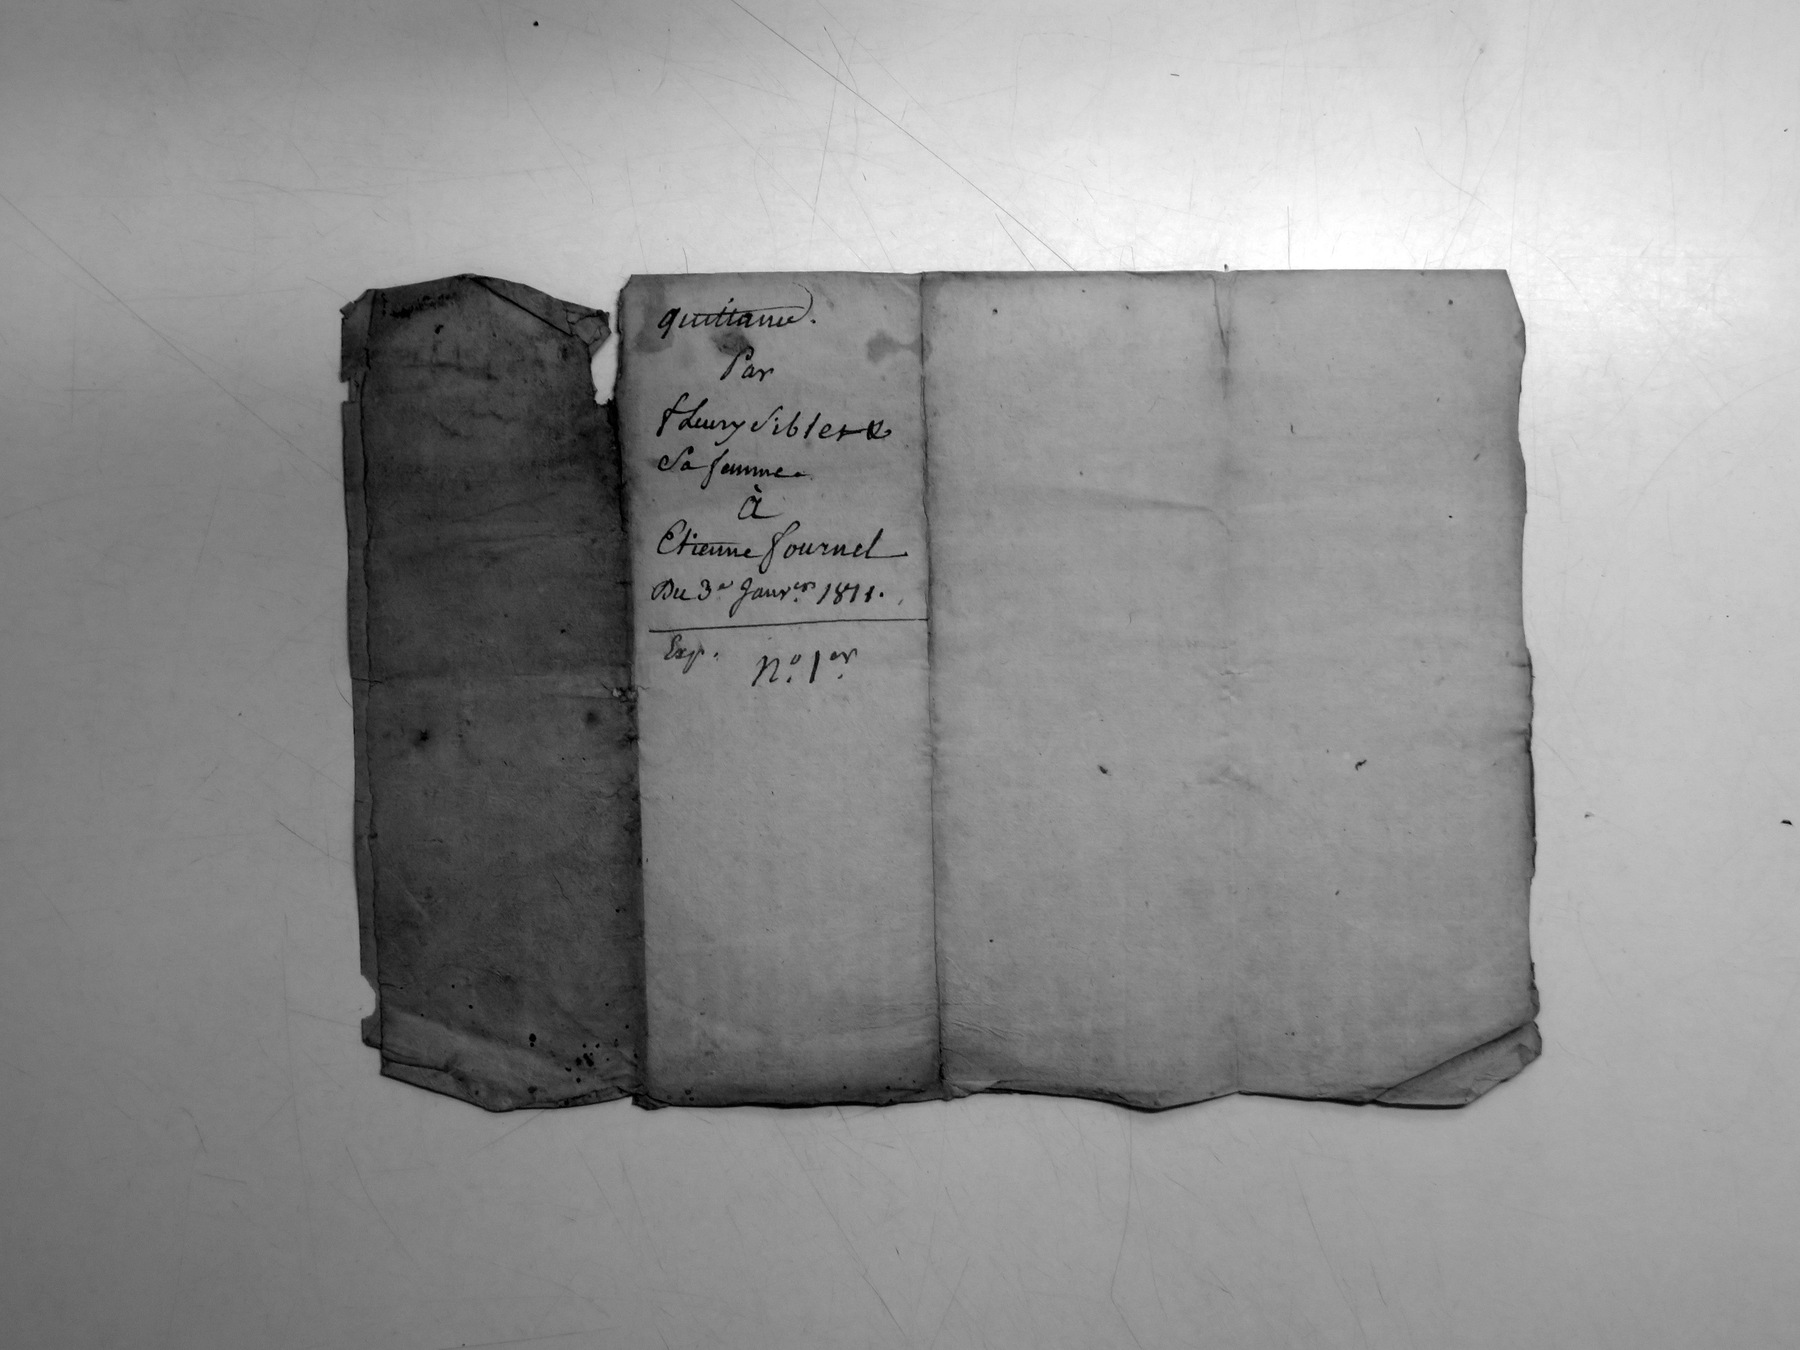 quittance.
Par
fleury Siblet &
Sa femme.
à
Etienne fournel
Du 3e Janver 1811.
Exp.
No. 1er